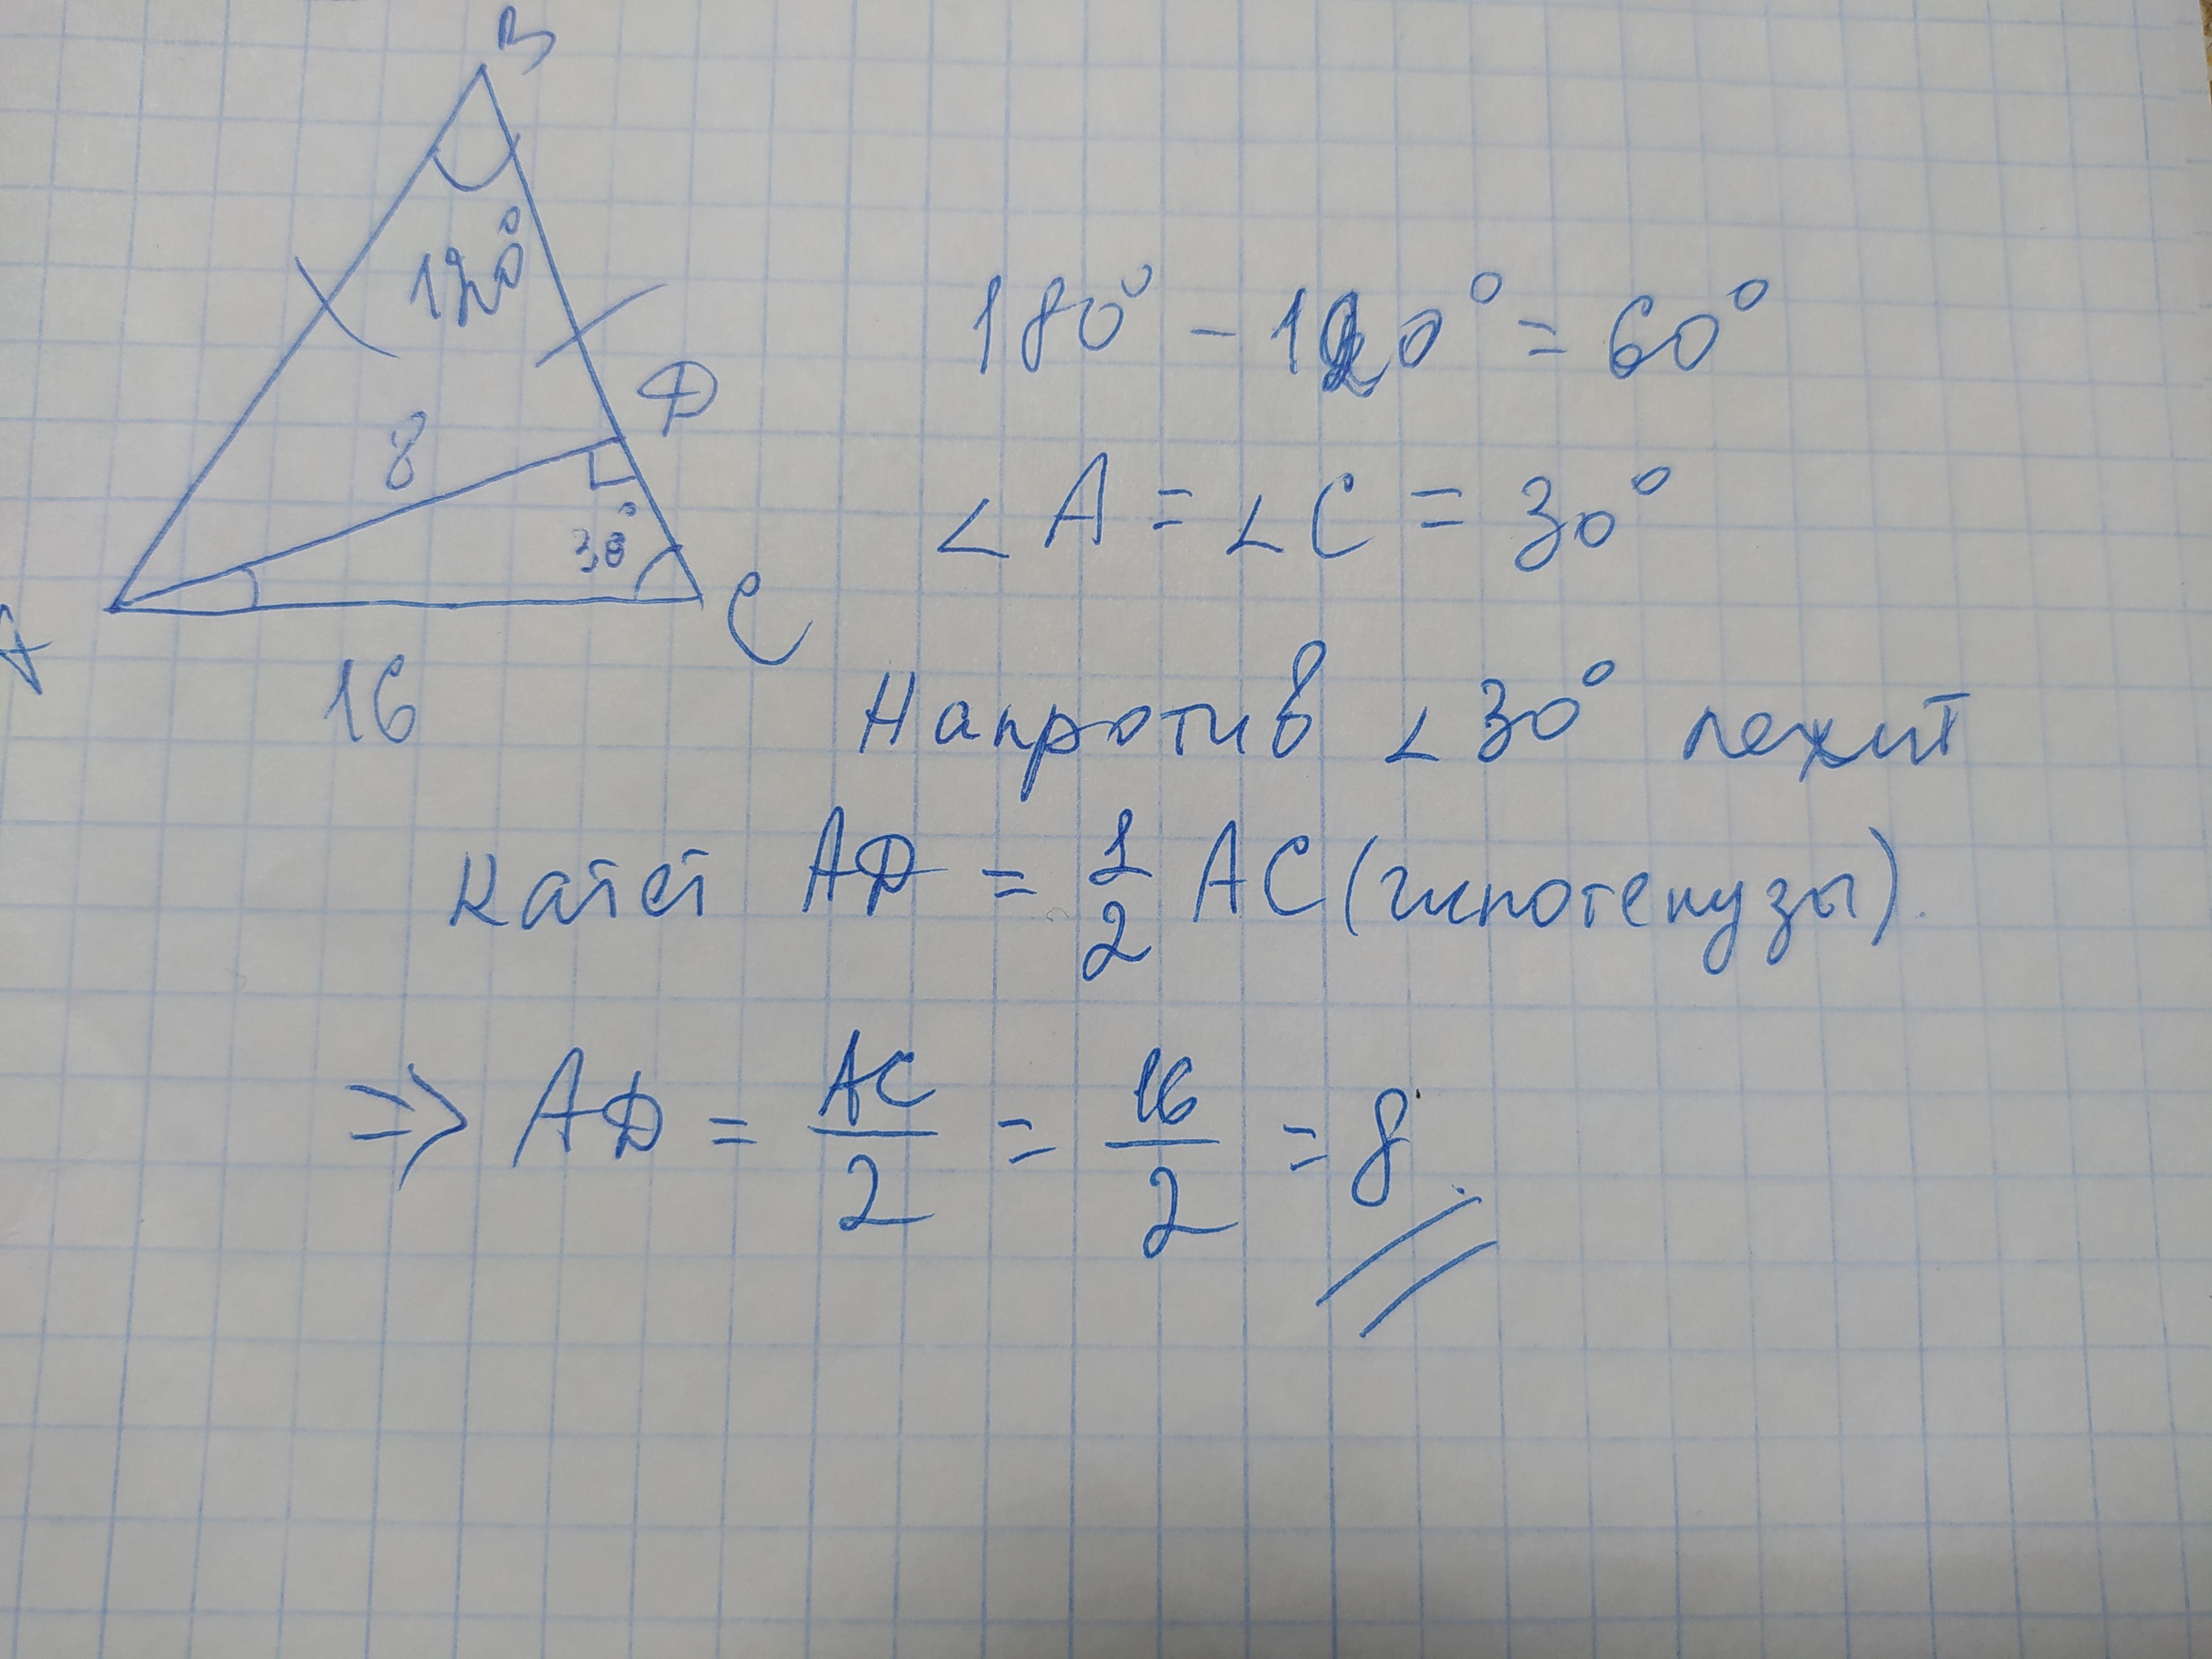 B
120°
D
8
30°
A
C
16
180° - 120° = 60°
∠A = ∠C = 30°
Напротив ∠30° лежит
катет AD = 1/2 AC (гипотенузы).
⇒ AD = AC/2 = 16/2 = 8.